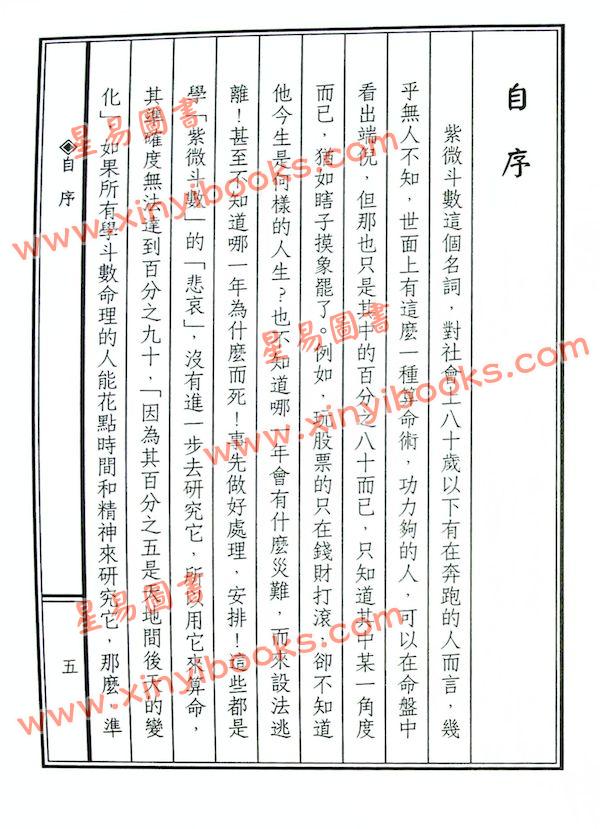 自序
紫微斗數這個名詞，對社會上八十歲以下有在奔跑的人而言，幾
乎無人不知，世面上有這麼一種算命術，功力夠的人，可以在命盤中
看出端倪，但那也只是其中的百分之八十而已，只知道其中某一角度
而已，猶如瞎子摸象罷了。例如，玩股票的只在錢財打滾，卻不知道
他今生是何樣的人生？也不知道哪一年會有什麼災難，而來設法逃
離！甚至不知道哪一年為什麼而死！事先做好處理，安排！這些都是
學「紫微斗數」的「悲哀」，沒有進一步去研究它，所以用它來算命，
其準確度無法達到百分之九十，「因為其百分之五是天地間後天的變
化」，如果所有學斗數命理的人能花點時間和精神來研究它，那麼，準
◈自序
五
星易圖書
www.xinyibooks.com
星易圖書
www.xinyibooks.com
星易圖書
www.xinyibooks.com